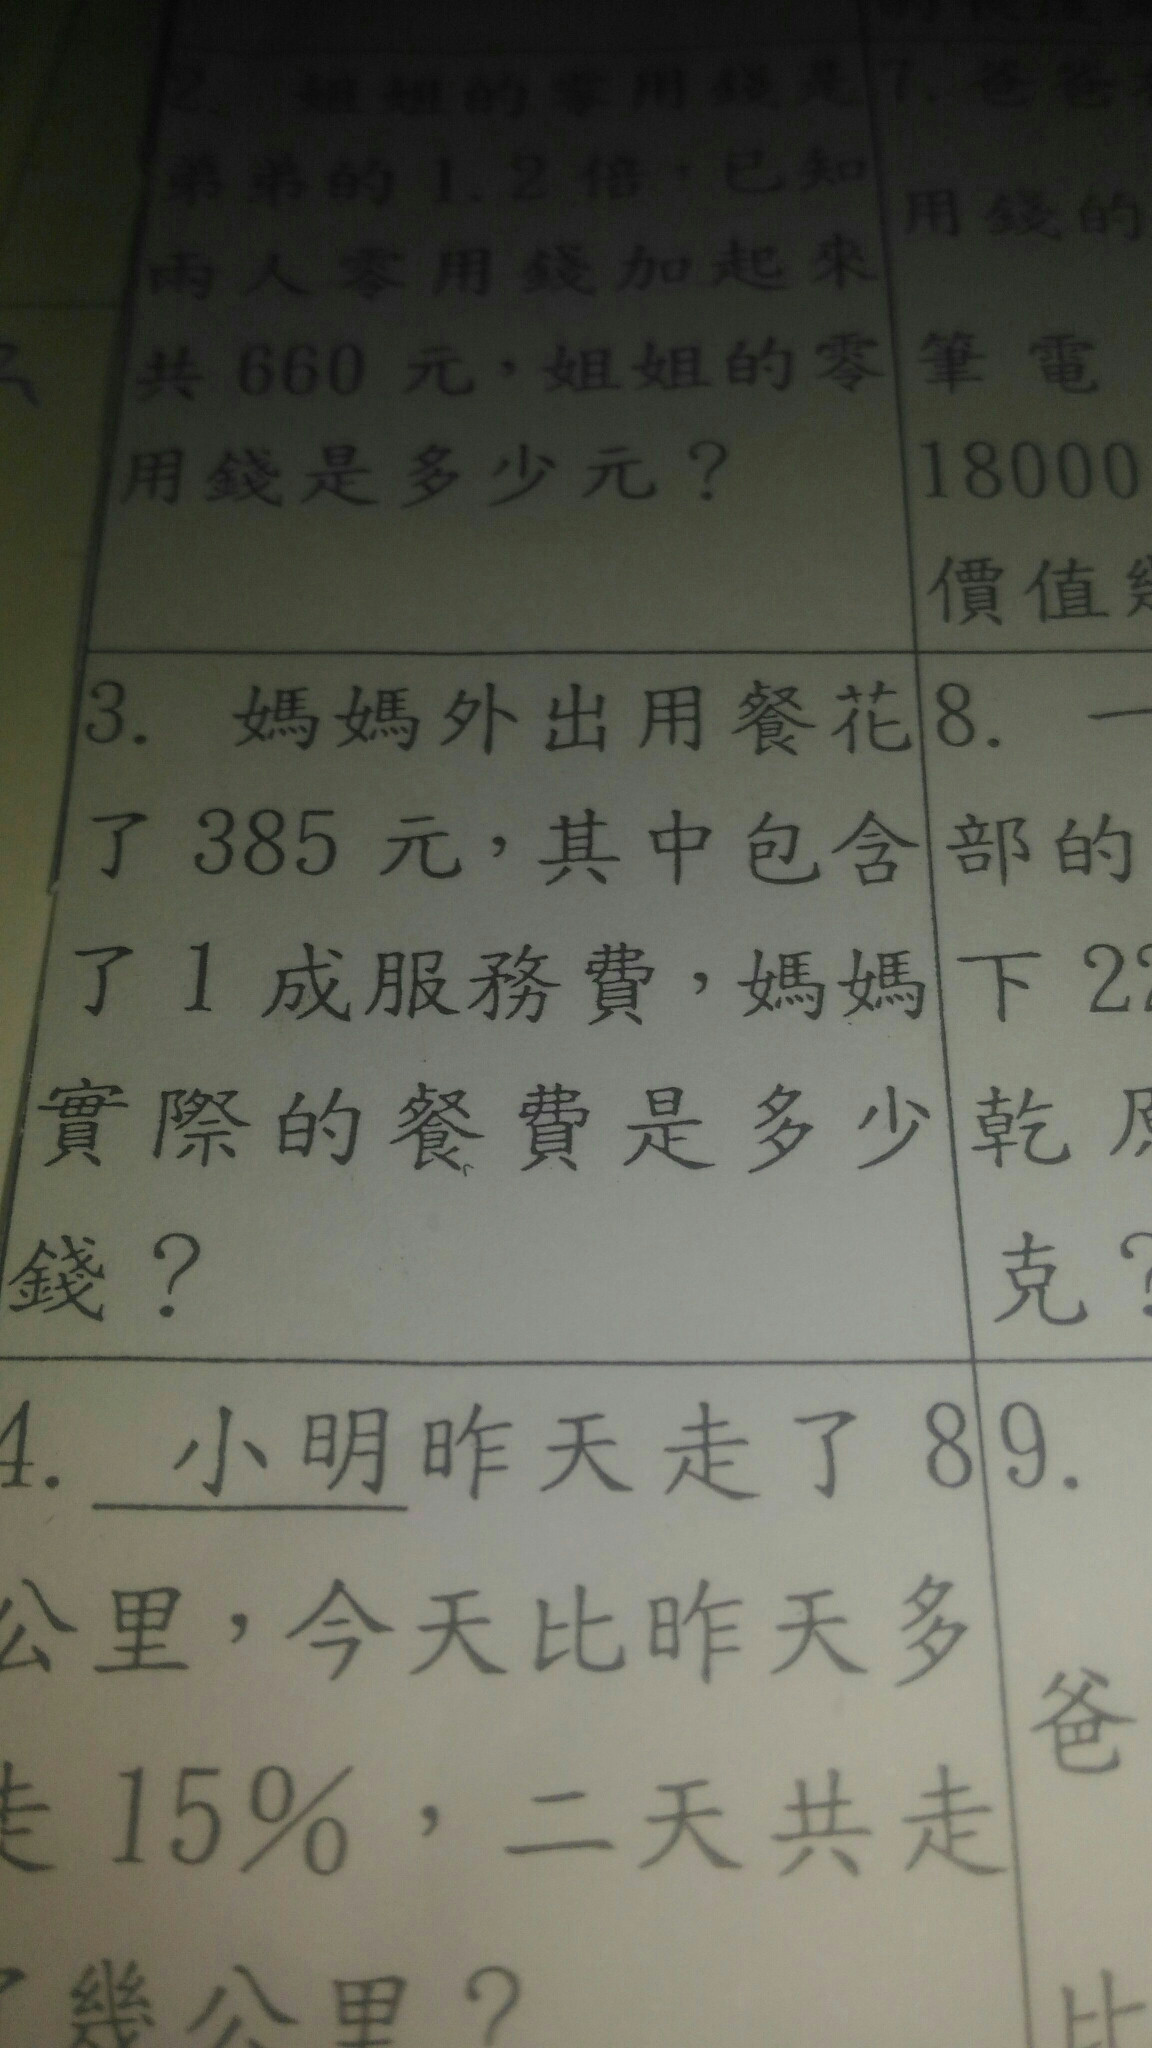 2. 姐姐的零用錢是
弟弟的 1.2 倍，已知
兩人零用錢加起來
共 660 元，姐姐的零
用錢是多少元？
3. 媽媽外出用餐花
了 385 元，其中包含
了 1 成服務費，媽媽
實際的餐費是多少
錢？
4. 小明昨天走了 8
公里，今天比昨天多
走 15%，二天共走
了幾公里？
7. 爸爸
用錢的
筆電
18000
價值
8. 一
部的
下 22
乾原
克？
9.
爸
比